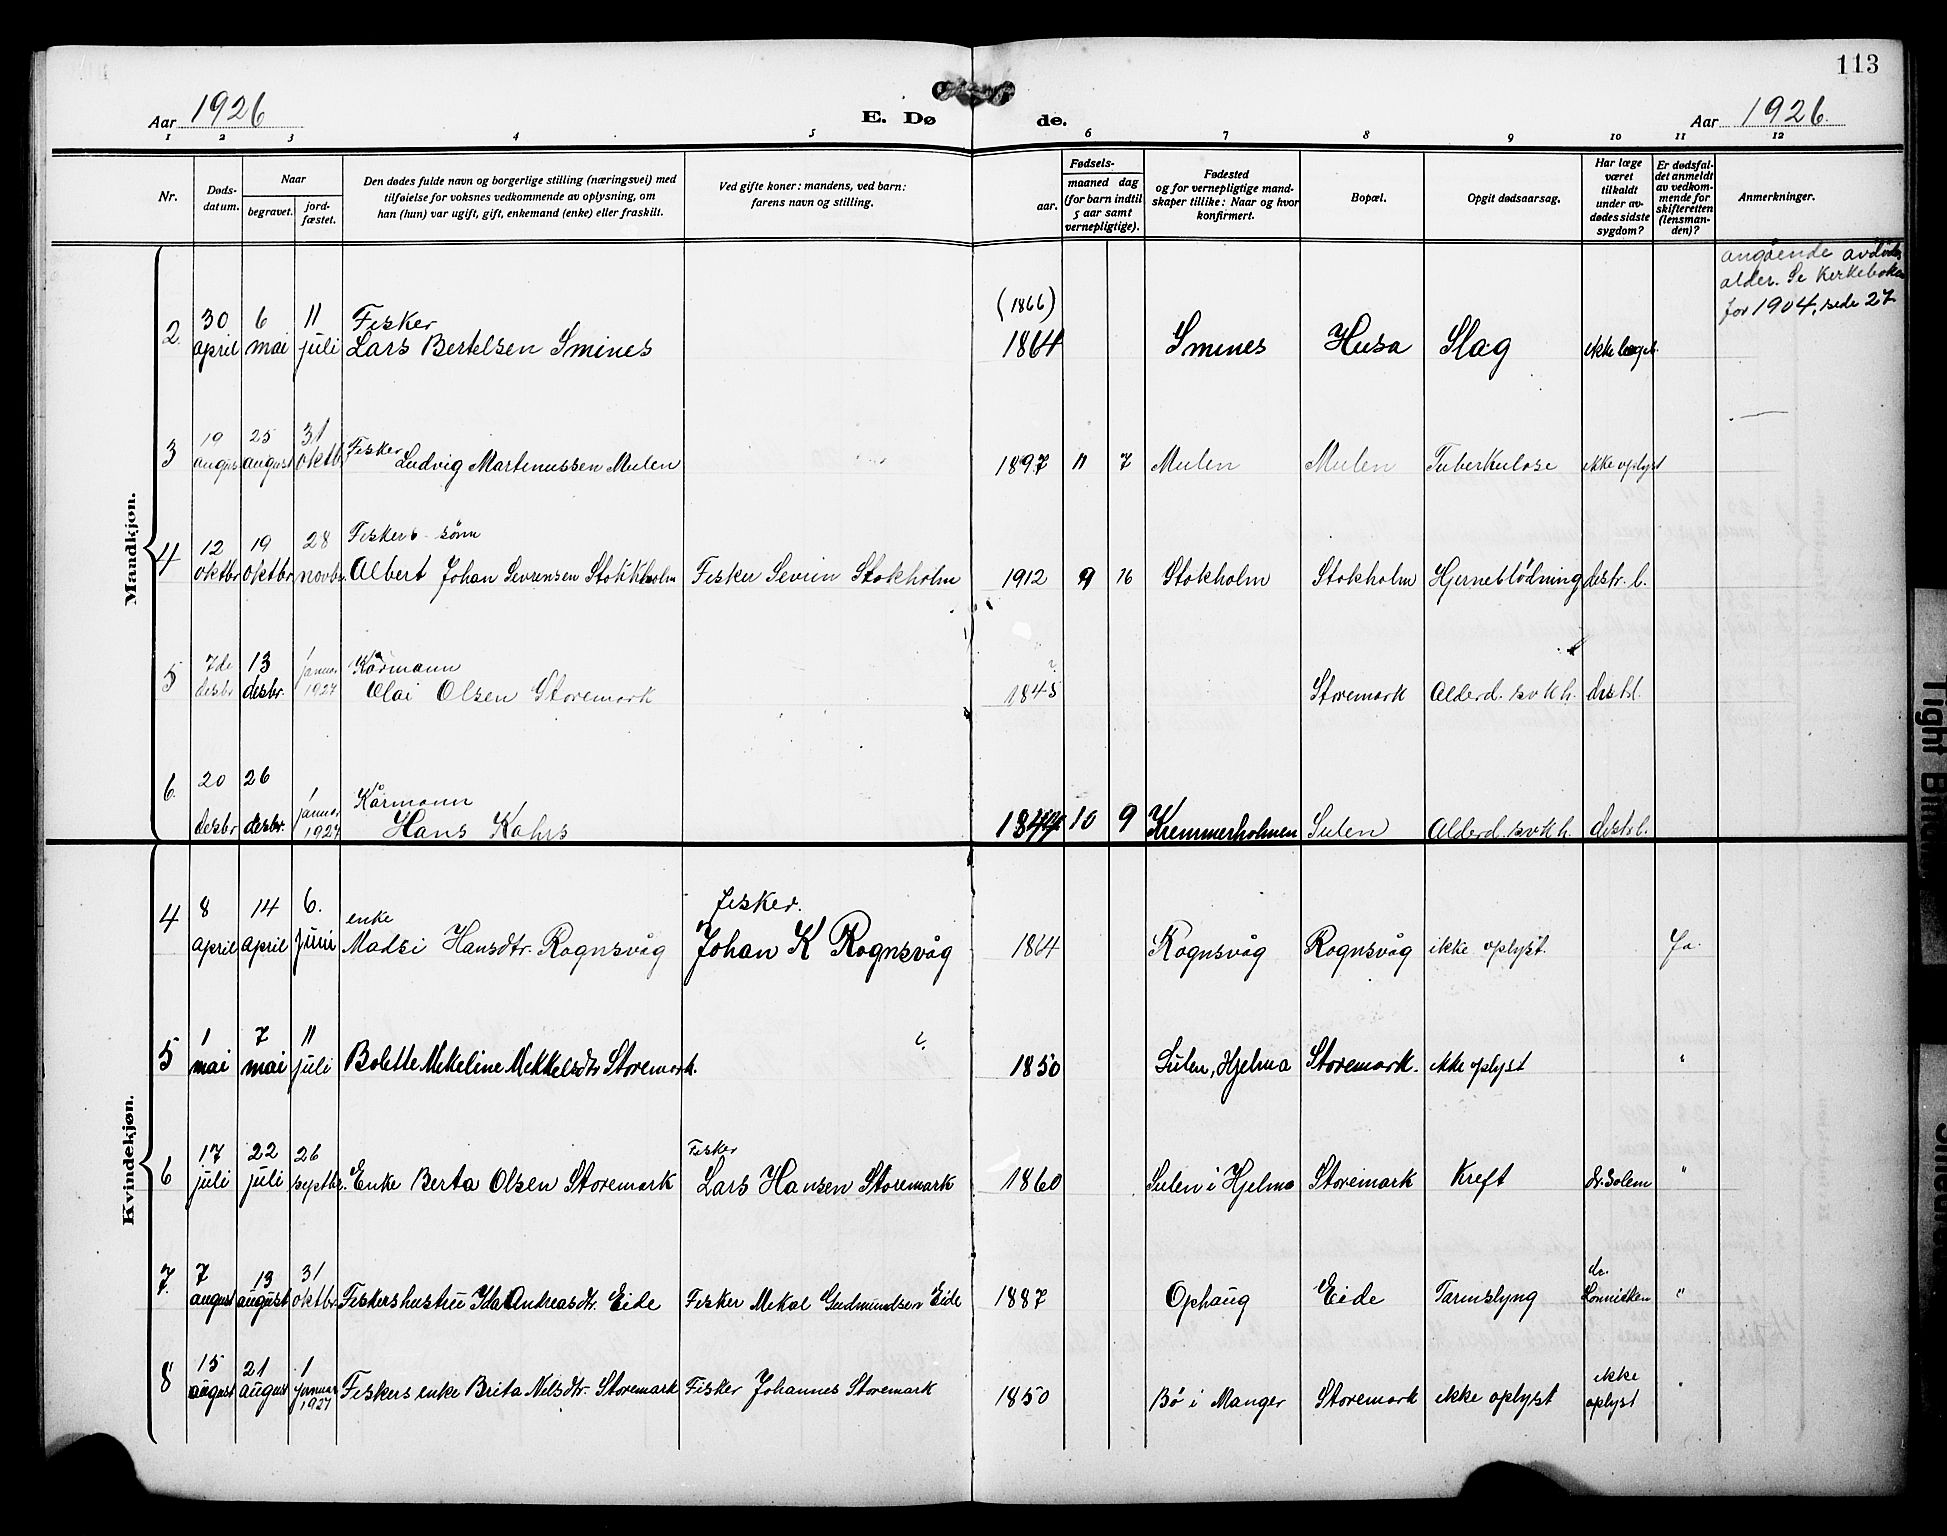 113
Aar 1926
E. Døde.
Aar 1926.
1 2 3 4 5 6 7 8 9 10 11 12
Nr.
Dødsdatum.
Naar
begravet.
jordfæstet.
Den dødes fulde navn og borgerlige stilling (næringsvei) med
tilføielse for voksnes vedkommende av oplysning, om
han (hun) var ugift, gift, enkemand (enke) eller fraskilt.
Ved gifte koner: mandens, ved barn:
farens navn og stilling.
Fødsels-
aar.
maaned dag
(for barn indtil
5 aar samt
vernepligtige).
Fødested
og for vernepligtige mand-
skaper tillike: Naar og hvor
konfirmert.
Bopæl.
Opgit dødsaarsag.
Har læge
været
tilkaldt
under av-
dødes sidste
sygdom?
Er dødsfal-
det anmeldt
av vedkom-
mende for
skifteretten
(lensman-
den)?
Anmerkninger.
Mandkjøn.
angående avdødes
alder. Se Kerkeboken
for 1904, side 27
2. 30 april 6 mai 11 juli Fisker
Lars Bertelsen Smines (1866) 1864 Smines Husa Slag ikke
3 19 august 25 august 31 oktbr Fisker Ludvig Martinussen Mulen 1897 11 7 Mulen Mulen Tuberkulose ikke oplyst
4 12 oktbr 19 oktbr 28 novbr. Fiskers sønn
Albert Johan Sevrensen Stokkholm Fisker Sevrin Stokholm 1912 9 16 Stokholm Stokholm Hjerneblödning distr. l.
5 7de desbr 13 desbr. 1 januar 1927 Kårmann
Elai Olsen Storemark 1845 ? Storemark Alderd. svkh. distrl.
6. 20 desbr 26 desbr. 1 januar 1927 Kårmann
Hans Kahrs 1844 10 9 Kremmerholmen Sulen Alderd. svkh. distrl.
Kvindekjøn.
4 8 april 14 april 6. juni enke
Madsi Hansdtr. Rognsvåg fisker.
Johan K Rognsvåg 1864 Rognsvåg Rognsvåg ikke oplyst. Ja.
5 1 mai 7 mai 11 juli Bolette Mekeline Mekkelsdtr Storemark. ? 1850 Sulen, Hjelma Storemark. ikke oplyst "
6 17 juli 22 juli 26 septbr. Enke Berta Olsen Storemark Fisker
Lars Hansen Storemark 1860 Sulen i Hjelma Storemark Kreft dr. Solem "
7. 7 august 13 august 31 oktbr. Fiskershustru Ida Andreasdtr. Eide Fisker Mekal Gudmundsen Eide 1887 Ophaug Eide Tarmslyng dr. "
8 15 august 21 august 1 januar 1927 Fiskers enke Brita Nilsdtr. Storemark Fisker Johannes Storemark 1850 Bø i Manger Storemark ikke oplyst ikke oplyst "